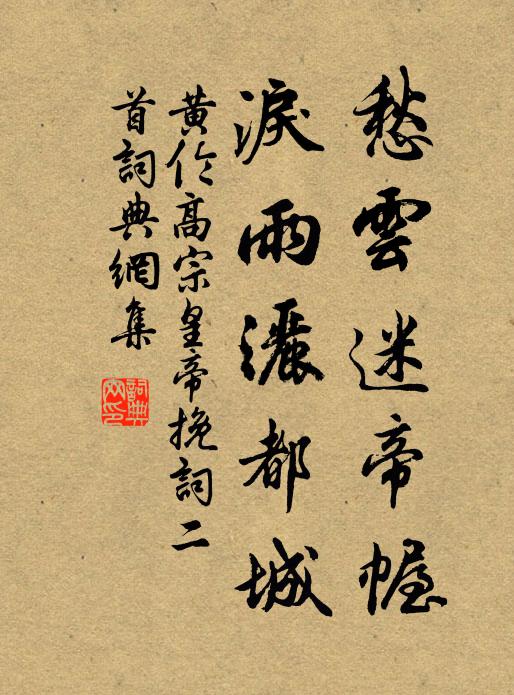 愁雲迷帝幄
淚雨灑都城
黄伀高宗皇帝挽詞二
首詞典網集